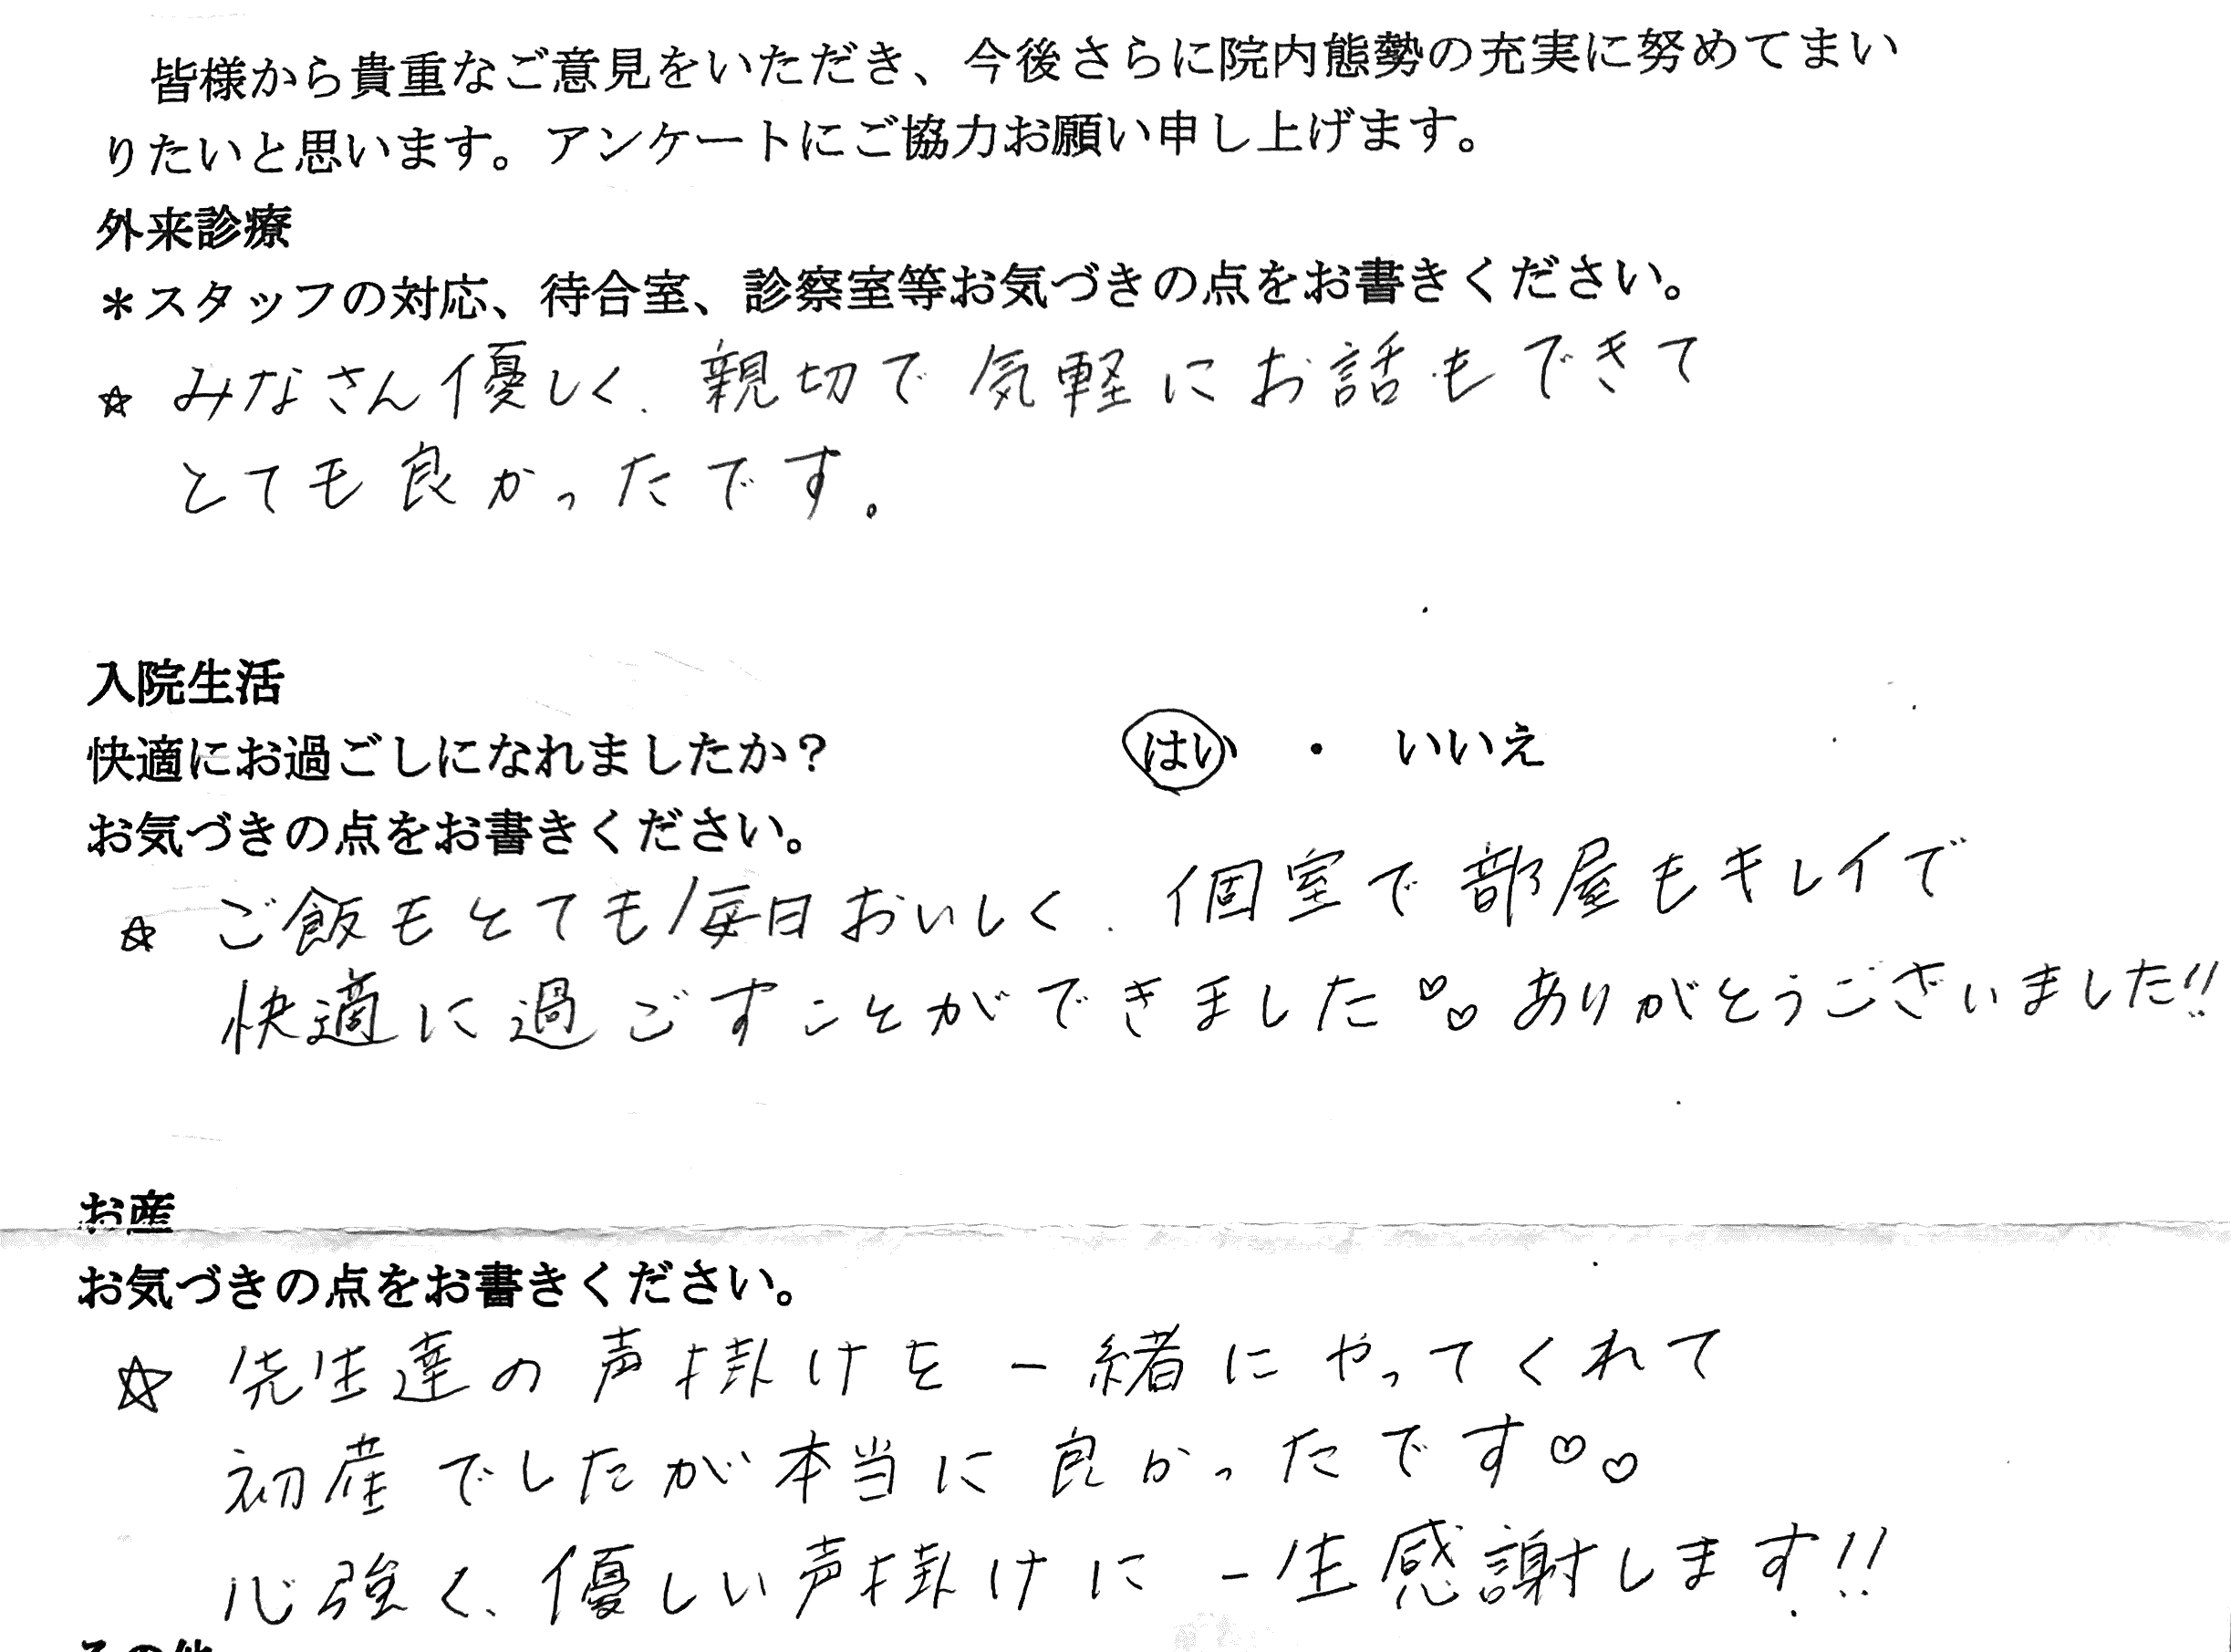 皆様から貴重なご意見をいただき、今後さらに院内態勢の充実に努めてまい
りたいと思います。アンケートにご協力お願い申し上げます。
外来診療
＊スタッフの対応、待合室、診察室等お気づきの点をお書きください。
☆ みなさん優しく、親切で気軽にお話もできて
とても良かったです。
入院生活
快適にお過ごしになれましたか？　はい ・ いいえ
お気づきの点をお書きください。
☆ ご飯もとても毎日おいしく、個室で部屋もキレイで
快適に過ごすことができました♡♡ありがとうございました!!
お産
お気づきの点をお書きください。
☆ 先生達の声掛けを一緒にやってくれて
初産でしたが本当に良かったです♡♡
心強く、優しい声掛けに一生感謝します!!